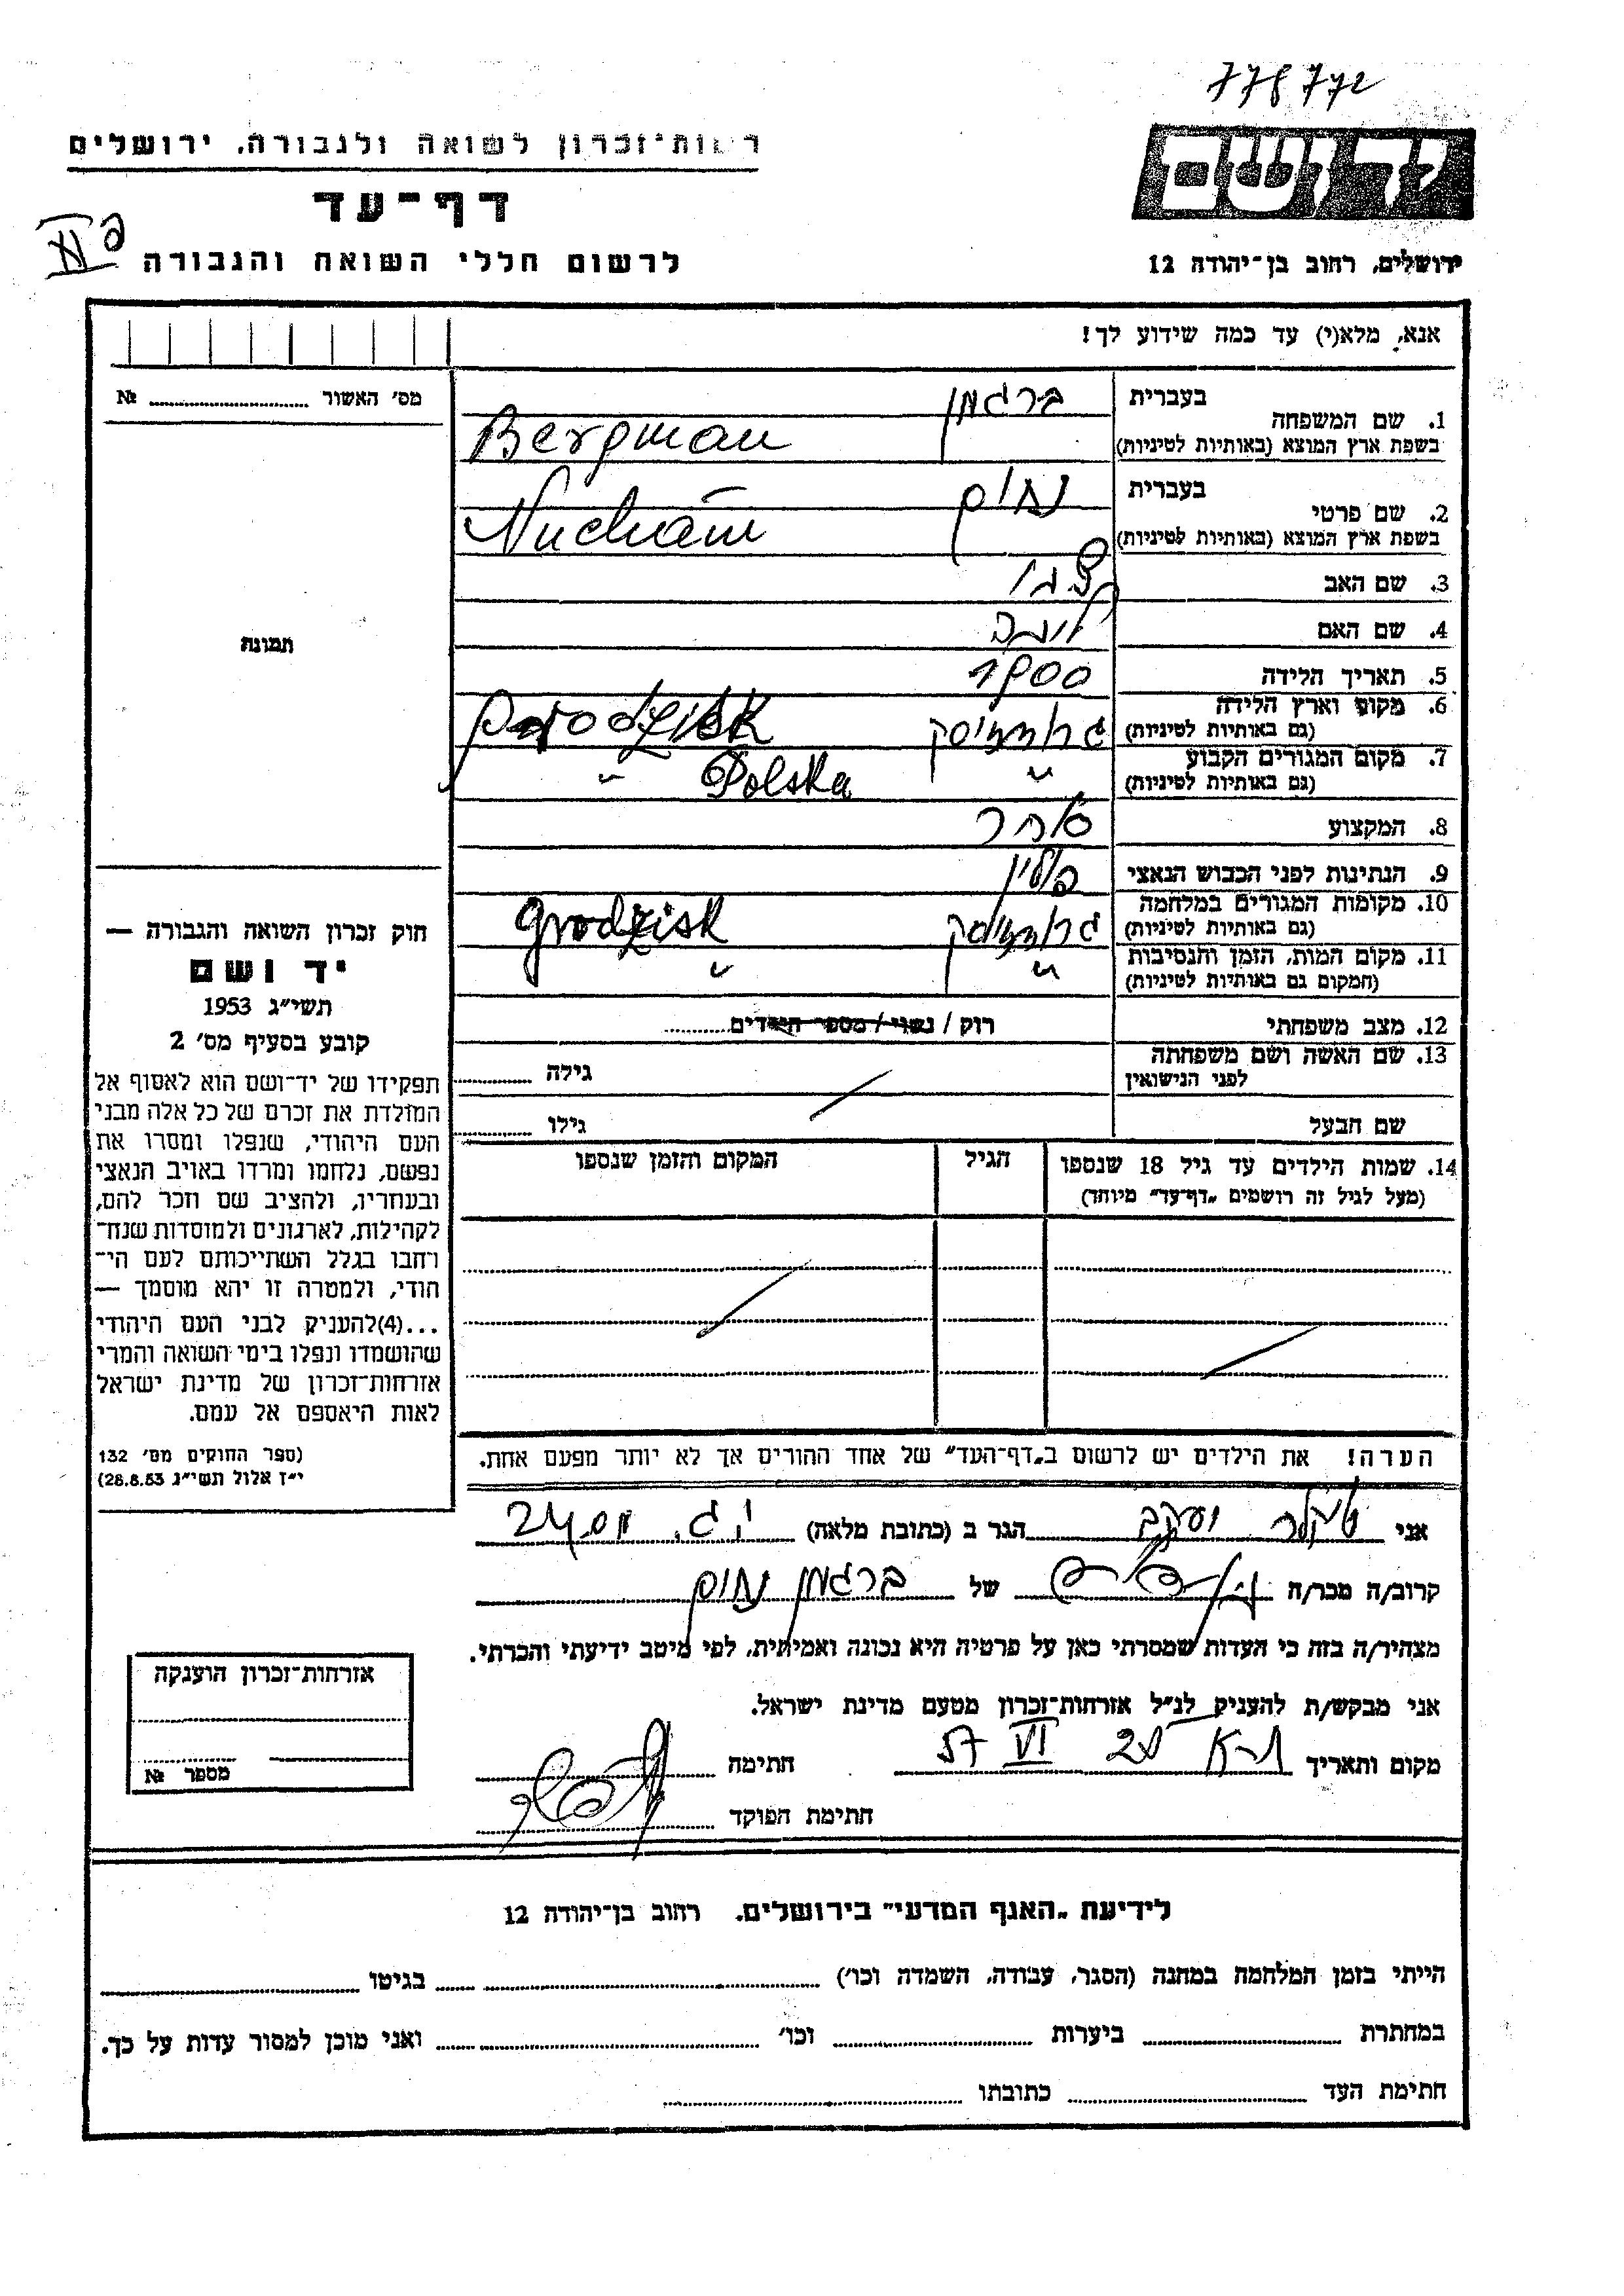 778772
רשות־זכרון לשואה ולגבורה, ירושלים
דף־עד
לרשום חללי השואה והגבורה
ירושלים, רחוב בן־יהודה 12
אנא, מלא(י) עד כמה שידוע לך!
מס׳ האשור № 
1. שם המשפחה
בעברית ברגמן
בשפת ארץ המוצא (באותיות לטיניות) Bergman
2. שם פרטי
בעברית נחום
בשפת ארץ המוצא (באותיות לטיניות) Nucham
3. שם האב
4. שם האם
תמונה
5. תאריך הלידה 1900
6. מקום וארץ הלידה
(גם באותיות לטיניות) Grodzisk
7. מקום המגורים הקבוע
(גם באותיות לטיניות) " Polska "
8. המקצוע סוחר
9. הנתינות לפני הכבוש הנאצי פולין
10. מקומות המגורים במלחמה
(גם באותיות לטיניות) Grodzisk
11. מקום המות, הזמן והנסיבות
(המקום גם באותיות לטיניות) " "
12. מצב משפחתי רוק / נשוי / מספר הילדים
13. שם האשה ושם משפחתה
לפני הנישואין גילה
שם הבעל גילו
14. שמות הילדים עד גיל 18 שנספו הגיל המקום והזמן שנספו
(מעל לגיל זה רושמים „דף־עד״ מיוחד)
חוק זכרון השואה והגבורה —
יד ושם
תשי״ג 1953
קובע בסעיף מס׳ 2
תפקידו של יד־ושם הוא לאסוף אל
המולדת את זכרם של כל אלה מבני
העם היהודי, שנפלו ומסרו את
נפשם, נלחמו ומרדו באויב הנאצי
ובעוזריו, ולהציב שם וזכר להם,
לקהילות, לארגונים ולמוסדות שנח־
רבו בגלל השתייכותם לעם הי־
הודי, ולמטרה זו יהא מוסמך —
...(4)להעניק לבני העם היהודי
שהושמדו ונפלו בימי השואה והמרי
אזרחות־זכרון של מדינת ישראל
לאות היאספם אל עמם.
(ספר החוקים מס׳ 132
י״ז אלול תשי״ג 28.8.53)
הערה! את הילדים יש לרשום ב„דף־העד״ של אחד ההורים אך לא יותר מפעם אחת.
אני יעקב הגר ב (כתובת מלאה)
קרוב/ה מכר/ה של ברגמן נחום
מצהיר/ה בזה כי העדות שמסרתי כאן על פרטיה היא נכונה ואמיתית, לפי מיטב ידיעתי והכרתי.
אני מבקש/ת להעניק לנ״ל אזרחות־זכרון מטעם מדינת ישראל.
מקום ותאריך ת״א 20 VI 57 חתימה
חתימת הפוקד
אזרחות־זכרון הוענקה
מספר №
לידיעת „האגף המדעי״ בירושלים, רחוב בן־יהודה 12
הייתי בזמן המלחמה במחנה (הסגר, עבודה, השמדה וכו׳) בגיטו
במחתרת ביערות וכו׳ ואני מוכן למסור עדות על כך.
חתימת העד כתובתו